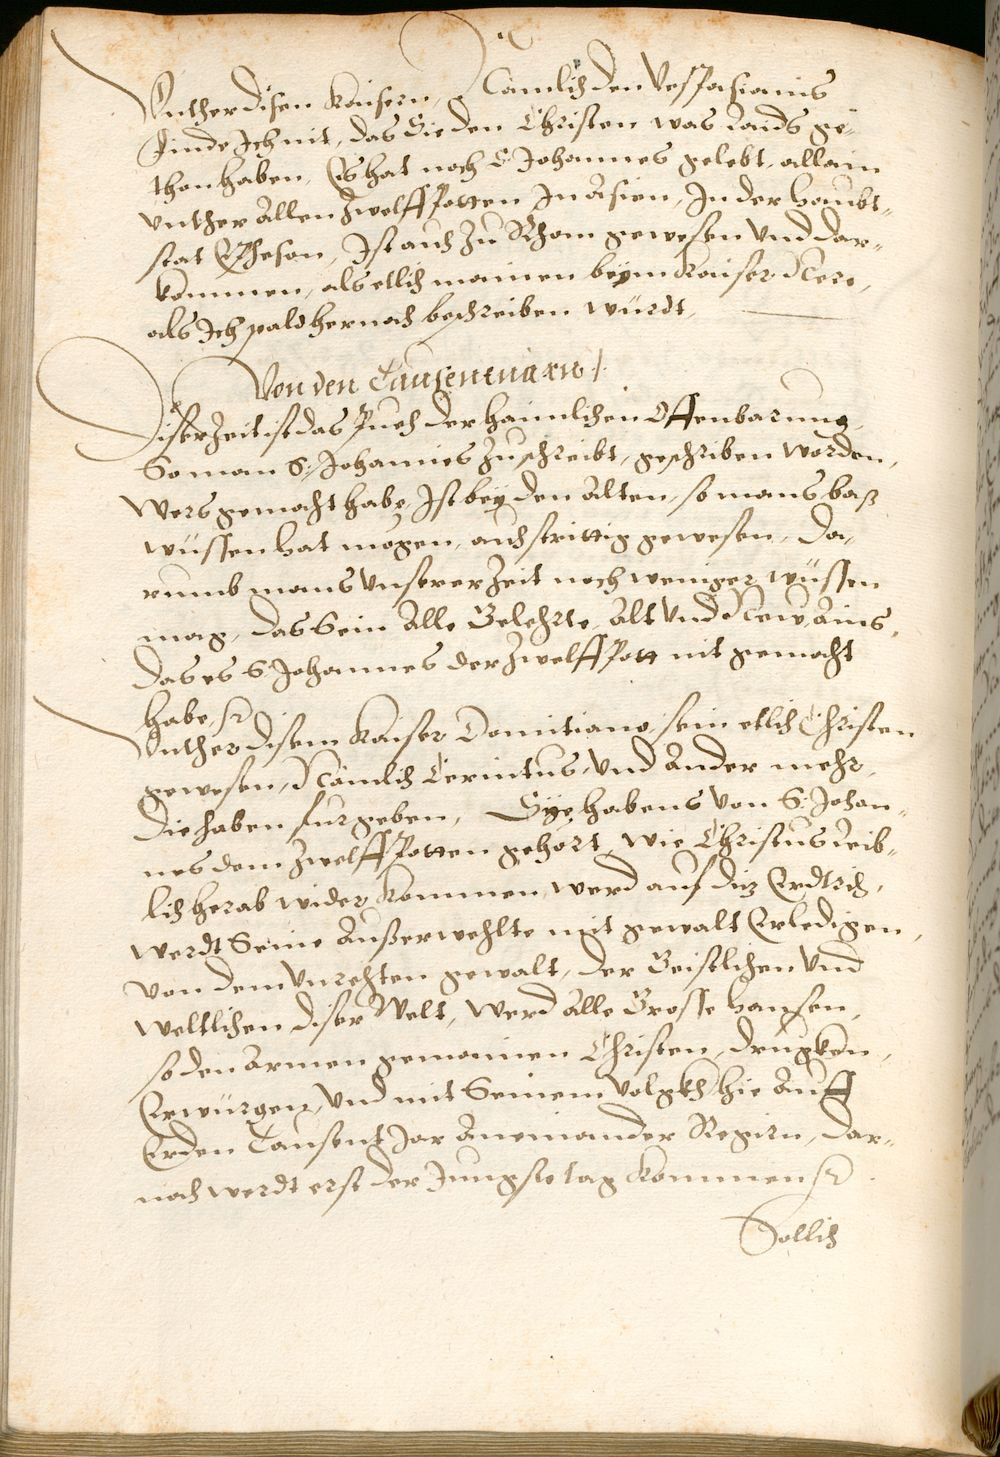 Vnther disen Kaisern, Nämlich den Vespasianis
finde Ich nit, das Sie den Christen was Laids ge-
thon haben, Es hat noch S. Johannes gelebt, allain
vnther Allen Zwelffpotten In Asien, In der haubt-
stat Epheson, Ist auch zu Rhom gewesen vnd dar-
kommen, als ettlich mainen beÿm Kaiser Nero,
als Ich pald hernach beschreiben würdt.
Von den Tausentiarn /.
Diser Zeit ist das Puech der haimlichen Offenbarung,
So man S: Johannes zuschreibt, geschriben worden,
Wers gemacht habe, Ist beÿ den Alten, so mans baß
wüssen hat mögen, auch strittig gewesen, Da-
rumb mans vnserer Zeit noch weniger wüssen
mag, das Sein Alle Gelehrte, Alt vnd New, Ains,
das es S: Johannes der Zwelffpott nit gemacht
habe, etc
Vnther disem Kaiser Domitiano, sein etlich Christen
gewesen, Nämlich Cerintus, vnd Ander mehr,
Die haben furgeben, Sÿe habens von S: Johan-
nes dem Zwelffpotten gehört, wie Christus Leib-
lich herab wider kommen werd auf diz Erdtrich,
werdt Seine Außerwehlte mit gewalt Erledigen,
von dem vnrechten gewalt, der Geistlichen vnd
weltlichen diser Welt, Werd Alle Grosse hansen,
so den Armen gemainen Christen, drugken,
Erwürgen, vnd mit Seinem volgkh hie Auff
Erden Tausent Jar Aneinander Regirn, dar-
nach werdt erst der Jungste tag kommen etc
Sollich